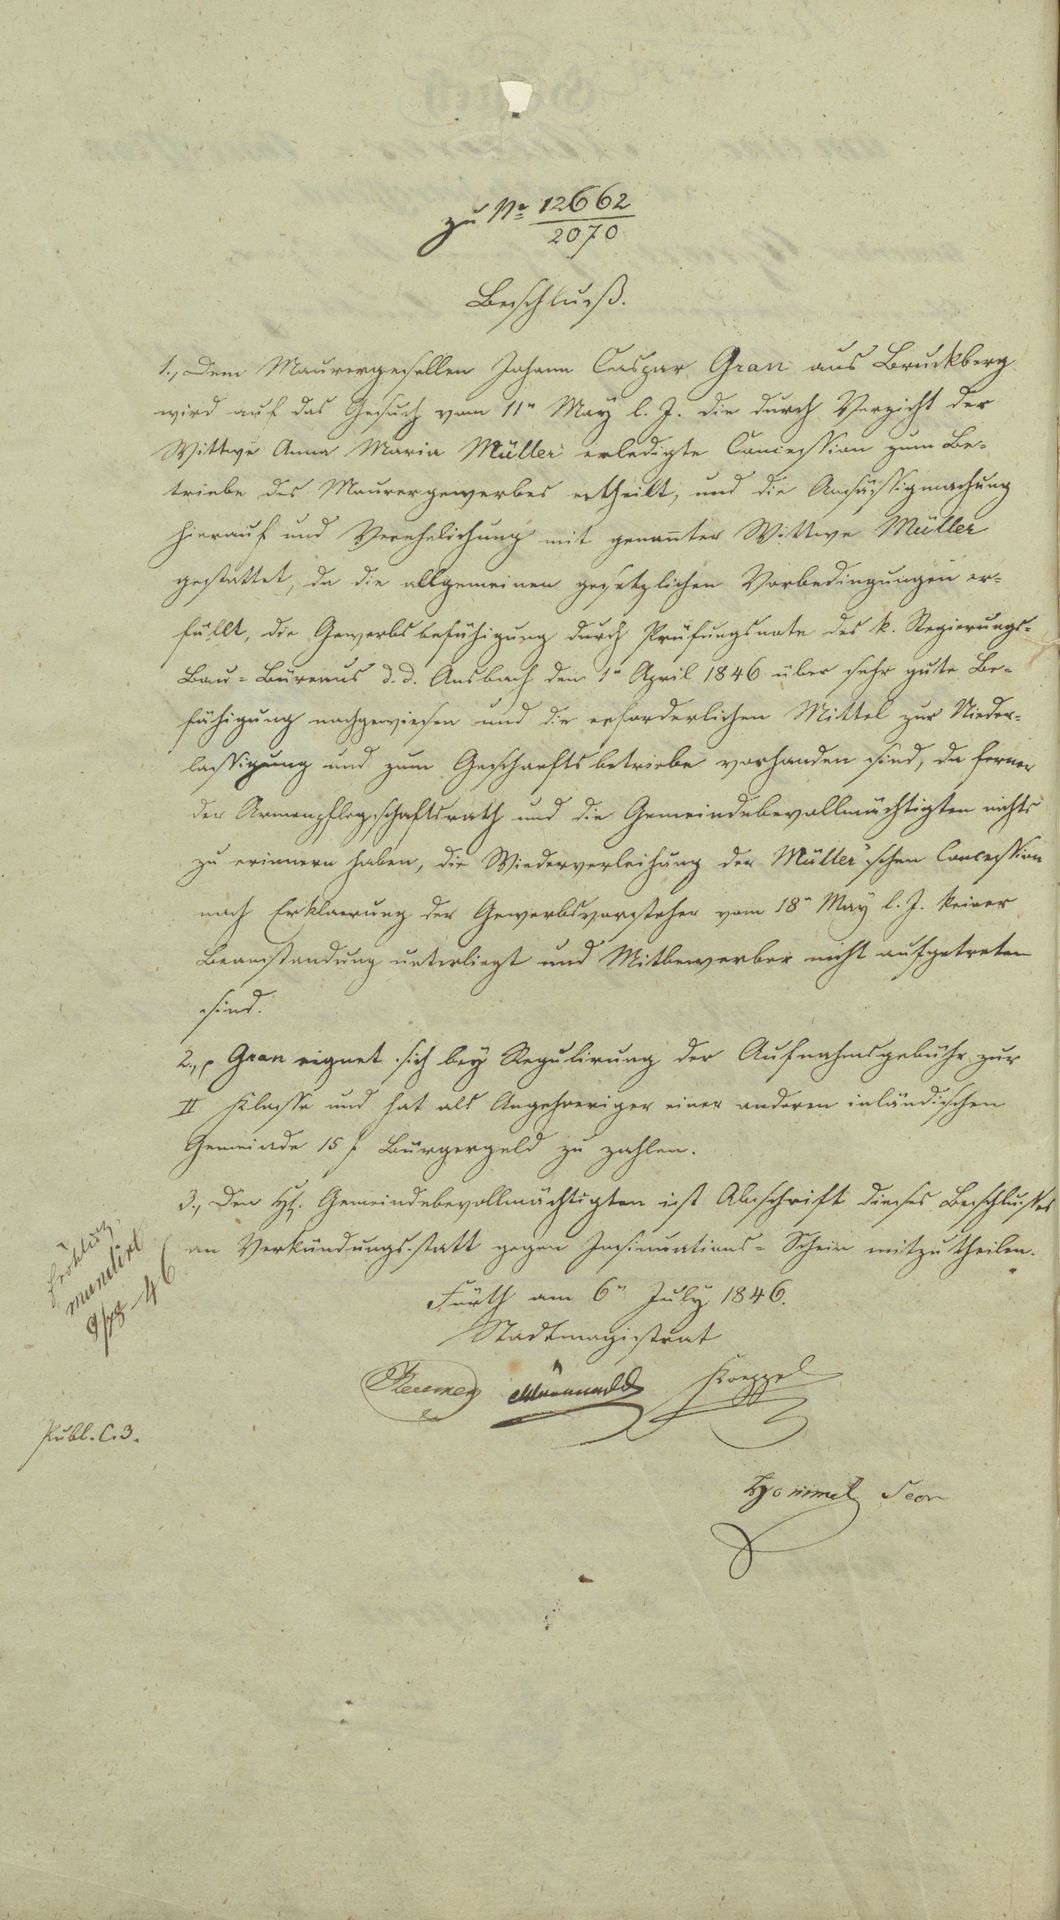 zu No 12662
2070
Beschluß.
1., Dem Maurergesellen Johann Caspar Gran aus Bruckberg
wird auf das Gesuch vom 11n May l. J. die durch Verzicht der
Wittwe Anna Maria Müller erledigte Concession zum Be-
triebe des Maurergewerbes ertheilt, und die Ansäßigmachung
hierauf und Verehelichung mit genannter Wittwe Müller
gestattet, da die allgemeinen gesetzlichen Vorbedingungen er-
füllt, die Gewerbsbefähigung durch Prüfungsnote des k. Regierungs-
Bau-Büreaus d. d. Ansbach den 1n April 1846 über sehr gute Be-
fähigung nachgewiesen und die erforderlichen Mittel zur Nieder-
lassigung und zum Geschaeftsbetriebe vorhanden sind, da ferner
der Armenpflegschaftsrath und die Gemeindebevollmächtigten nichts
zu erinnern haben, die Wiederverleihung der Müller'schen Concession
nach Erklaerung der Gewerbsvorsteher vom 18n May l. J. keiner
Beanstandung unterliegt und Mitbewerber nicht aufgetreten
sind.
2., p Gran eignet sich bey Regulirung der Aufnahmsgebühr zur
II Klasse und hat als Angehoeriger einer anderen inländischen
Gemeinde 15 f Bürgergeld zu zahlen.
3., Den HH. Gemeindebevollmächtigten ist Abschrift dieses Beschlusses
an Verkündungsstatt gegen Insinuations-Schein mitzutheilen.
Fürth am 6n July 1846.
Stadtmagistrat
Koeppel
Hommel Secr
mundirt
Publ. C. 3.